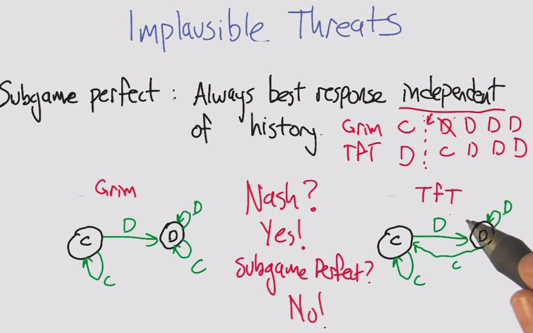 Implausible Threats
Subgame perfect : Always best response independent
of history.
Grim C D D D D
TFT D C D D D
Grim
Nash?
Yes!
Subgame Perfect?
No!
TfT
C D D D C
C D D C C